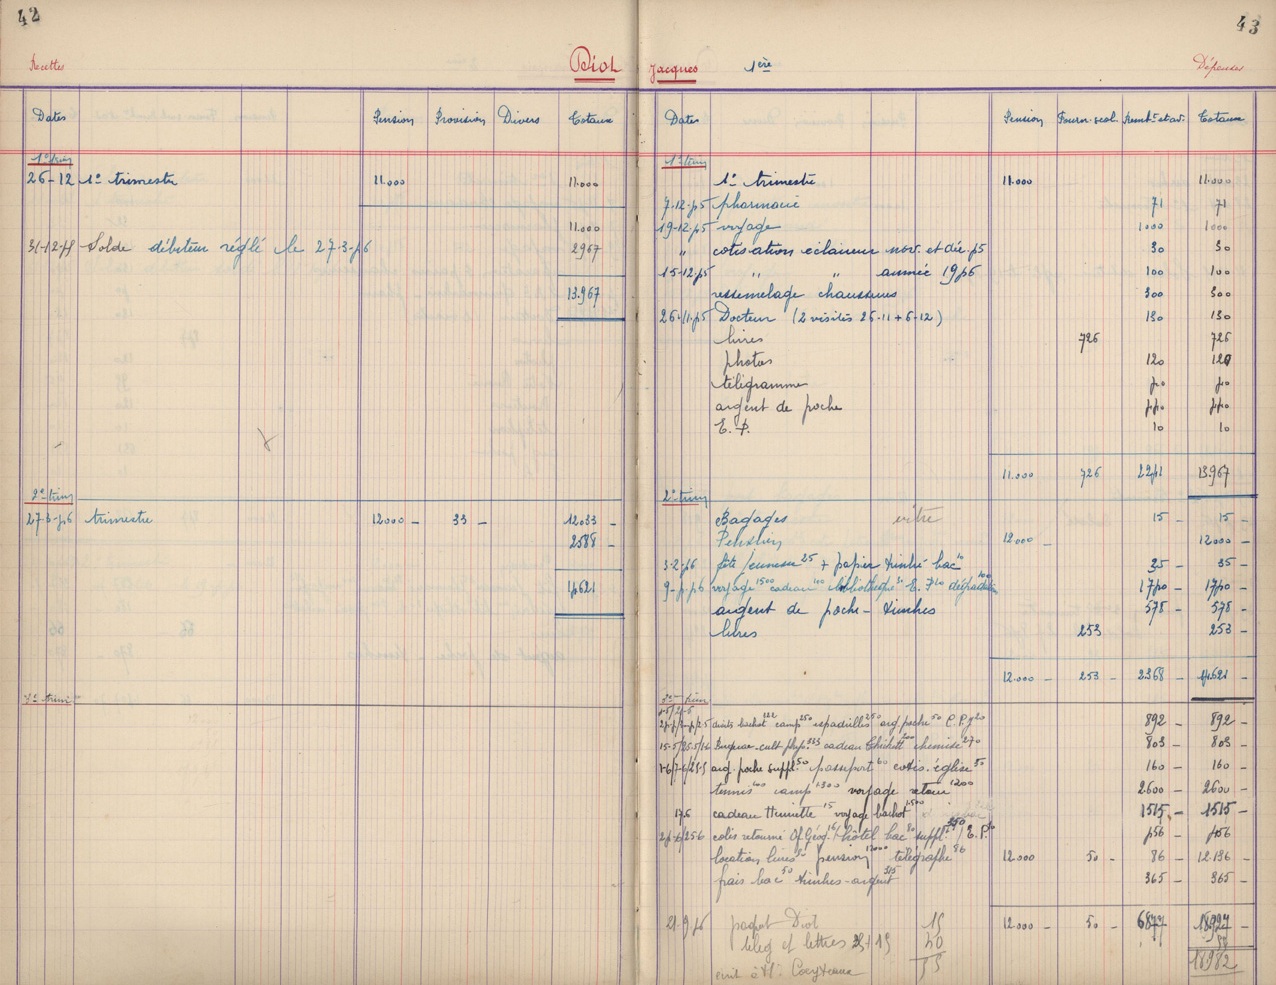 42
Recettes
Diot
Dates Pension Provision Divers Totaux
1er trim
26-12 1er trimestre 11.000 11.000
11.000
31-12-55 Solde débiteur réglé le 27-3-56 2967
13.967
2e trim
27-3-56 trimestre 12000 - 33 - 12033 -
2588 -
14621
3e trim
43
Jacques 1ère Dépenses
Dates Pension Fourn. scol. Remb. et av. Totaux
1er trim
1er trimestre 11.000 11.000
7-12-55 pharmacie 71 71
19-12-55 voyage 1000 1000
" cotisation éclaireur nov. et déc. 55 30 30
15-12-55 " " année 1956 100 100
ressemelage chaussures 300 300
26-11-55 Docteur (2 visites 26-11 + 6-12) 130 130
livres 726 726
photos 120 120
télégramme 50 50
argent de poche 550 550
E. P. 10 10
11.000 726 2241 13967
2e trim
Bagages 15 - 15 -
Pension 12.000 - 12000 -
3-2-56 fête jeunesse 25 + papier timbré bac 10 35 - 35 -
voyage 1500 cadeau bibliothèque E. P. 1750 - 1750 -
argent de poche - timbres 578 - 578 -
livres 253 253 -
12.000 - 253 - 2368 - 14621 -
3e trim
droits bachot 122 camp 250 espadrilles 250 arg. poche 50 E. P. 892 - 892 -
cult. phys. cadeau chemise 270 803 - 803 -
arg. poche suppl. 50 passeport 60 cotis. église 50 160 - 160 -
tennis camp 1300 voyage retour 1200 2600 - 2600 -
17.6 cadeau Henriette 15 voyage bachot 1500 1515 - 1515 -
colis retourné hôtel bac suppl. E. P. 556 - 556 -
location livres pension 12000 télégraphe 86 12.000 50 - 86 - 12.136 -
frais bac 50 timbres-argent 315 365 - 365 -
21.9.56 paquet Diot 15 12.000 - 50 - 6877 - 18927 -
télég et lettres 25+15 40
55 18982